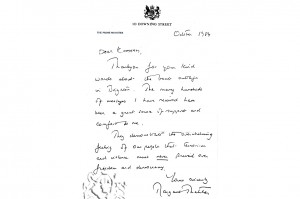 10 DOWNING STREET
THE PRIME MINISTER
October 1984
Dear
Thank you for your kind
words about the bomb outrage
in Brighton. The many hundreds
of messages I have received have
been a great source of support and
comfort to me.
They demonstrate the overwhelming
feeling of our people that terrorism
and violence must never prevail over
freedom and democracy.
Yours sincerely
Margaret Thatcher